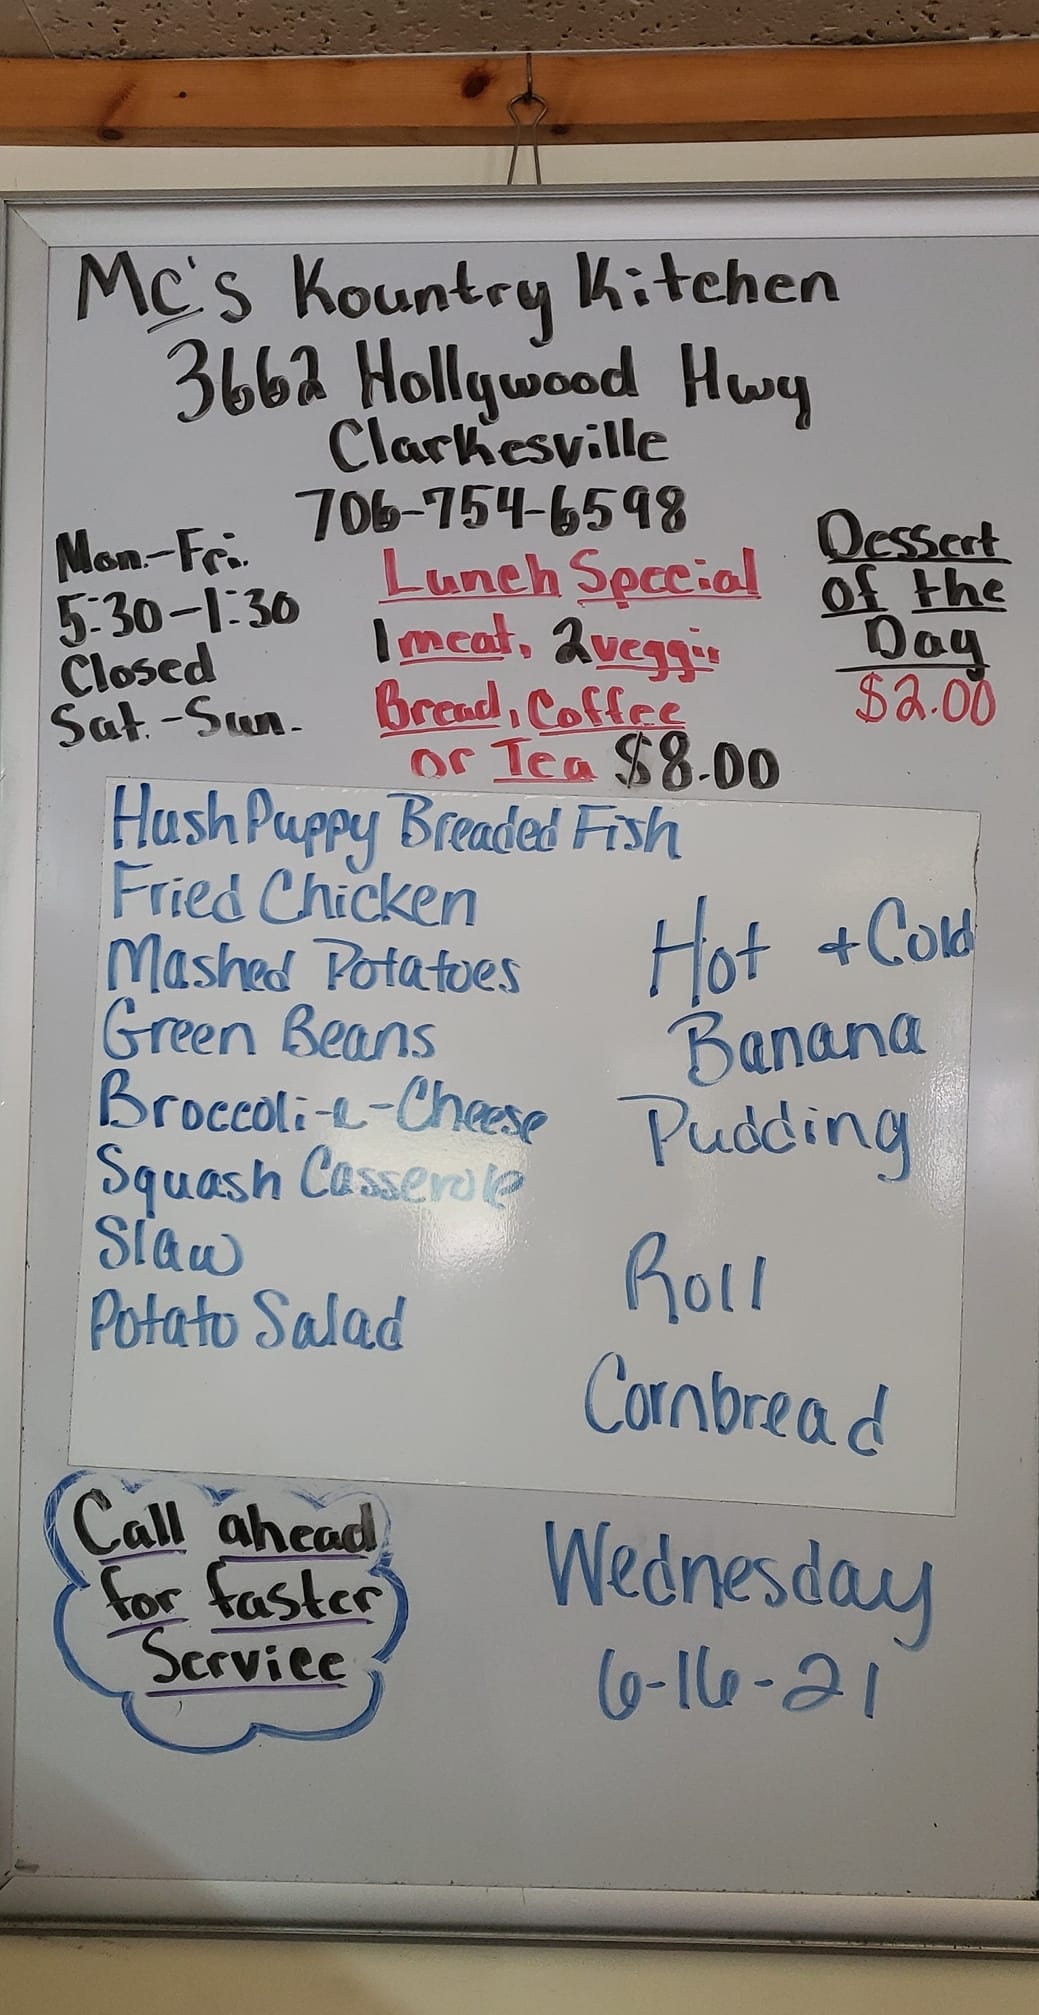 Mc's Kountry Kitchen
3662 Hollywood Hwy
Clarkesville
706-754-6598
Mon.-Fri.
5:30-1:30
Closed
Sat.-Sun.
Lunch Special
1 meat, 2 veggie
Bread, Coffee
or Tea $8.00
Dessert
of the
Day
$2.00
Hush Puppy Breaded Fish
Fried Chicken
Mashed Potatoes
Green Beans
Broccoli-n-Cheese
Squash Casserole
Slaw
Potato Salad
Hot + Cold
Banana
Pudding
Roll
Cornbread
Call ahead
for faster
Service
Wednesday
6-16-21